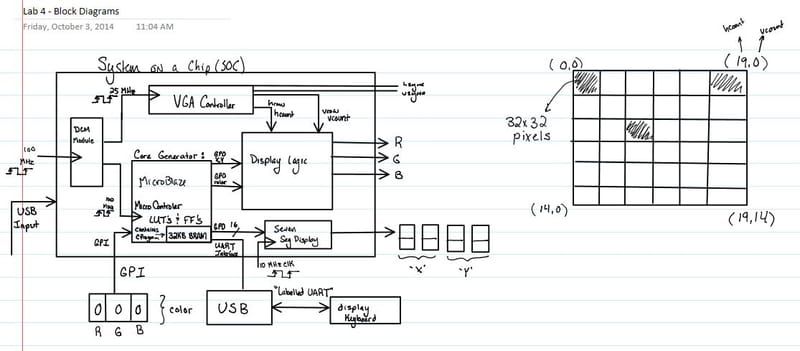 Lab 4 - Block Diagrams
Friday, October 3, 2014 11:04 AM
System on a Chip (SOC)
25 MHz
VGA Controller
hsync
vsync
hcount
vcount
DCM
Module
100
MHz
USB
Input
Core Generator:
MicroBlaze
Micro Controller
LUT's & FF's
32KB BRAM
100
MHz
GPI
GPO
GPO
color
GPO 16
UART
Display Logic
R
G
B
Seven
Seg Display
10 MHz Clk
"X"
"Y"
GPI
0 0 0
R G B
color
USB
"Labelled UART"
display
Keyboard
hcount
vcount
(0,0)
(19,0)
32x32
pixels
(14,0)
(19,14)